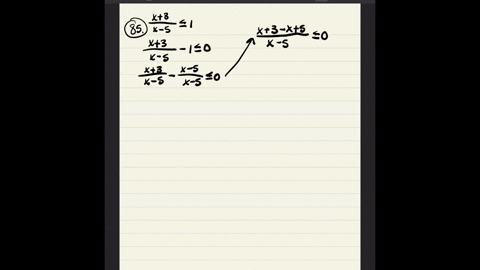 85. (x+3)/(x-5) ≤ 1
(x+3)/(x-5) - 1 ≤ 0
(x+3)/(x-5) - (x-5)/(x-5) ≤ 0
(x+3-x+5)/(x-5) ≤ 0